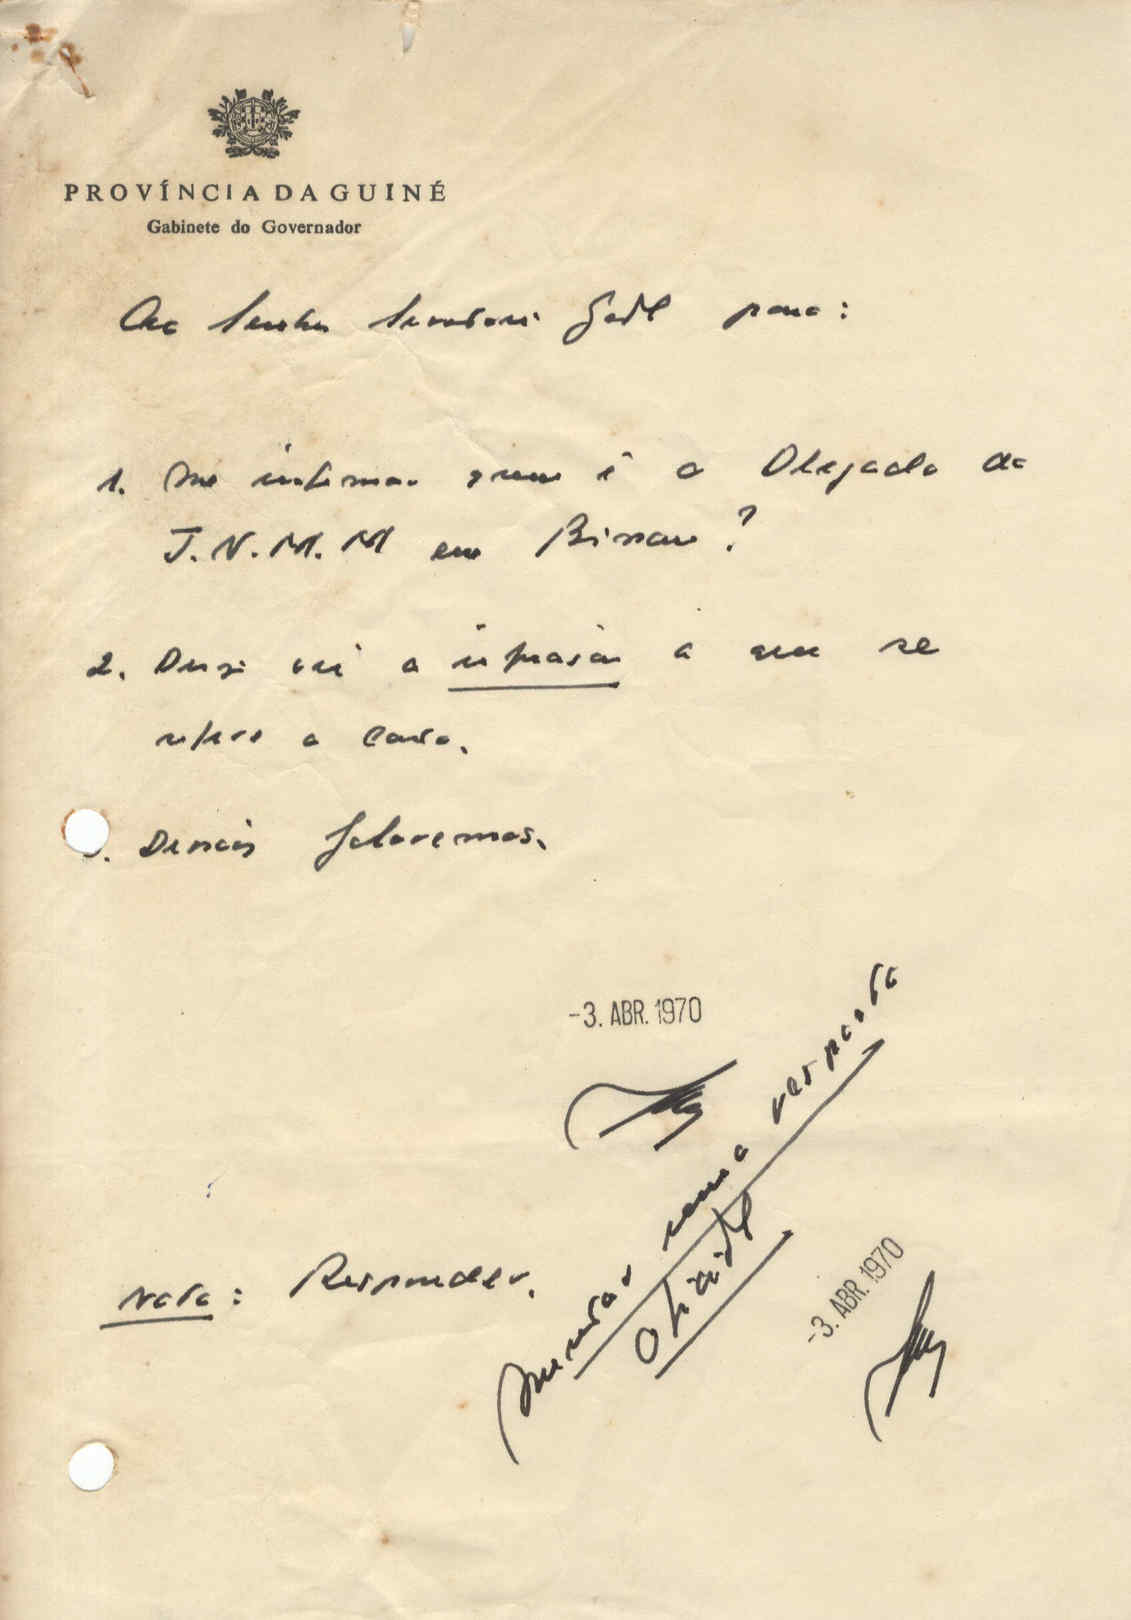 PROVÍNCIA DA GUINÉ
Gabinete do Governador
Ao Senhor Secretário Geral para:
1. Me informar quem é o Delegado da
J.N.M.M em Bissau?
2. Dizer a a que se
refere a carta.
3. Depois falaremos.
-3. ABR. 1970
Nota: Responder.
uma resposta
Oficial
-3. ABR. 1970